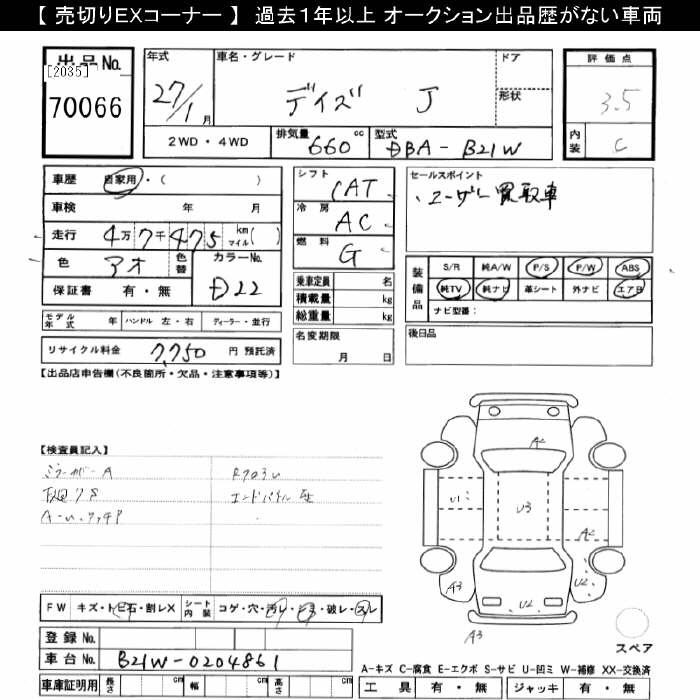 【 売切りEXコーナー 】 過去1年以上 オークション出品歴がない車両
出品No.
[2035]
70066
年式
27/1月
車名・グレード
デイズ J
ドア
形状
2WD・4WD
排気量 660 cc
型式 DBA-B21W
評価点
3.5
内装 C
車歴 自家用・( )
車検 年 月
走行 4万7千475 km マイル( )
色 アオ 色替 カラーNo.
D22
保証書 有・無
モデル年式 年 ハンドル 左・右 ディーラー・並行
リサイクル料金 7,750 円 預託済
シフト
CAT
冷房
AC
燃料
G
乗車定員 名
積載量 kg
総重量 kg
名変期限
月 日
セールスポイント
・ユーザー買取車
装備品
S/R 純A/W P/S P/W ABS
純TV 純ナビ 革シート 外ナビ エアB
ナビ型番:
後日品
【出品店申告欄(不良箇所・欠品・注意事項等)】
【検査員記入】
エンドパネル
FW キズ・トビ石・割レX シート内装 コゲ・穴・汚レ・ 破レ・スレ
登録No.
車台No. B21W-0204861
車庫証明用 長さ cm 幅 cm 高さ cm
A2
U1
U3
A2
A3
U2
U2
A3
スペア
A-キズ C-腐食 E-エクボ S-サビ U-凹ミ W-補修 XX-交換済
工具 有・無 ジャッキ 有・無